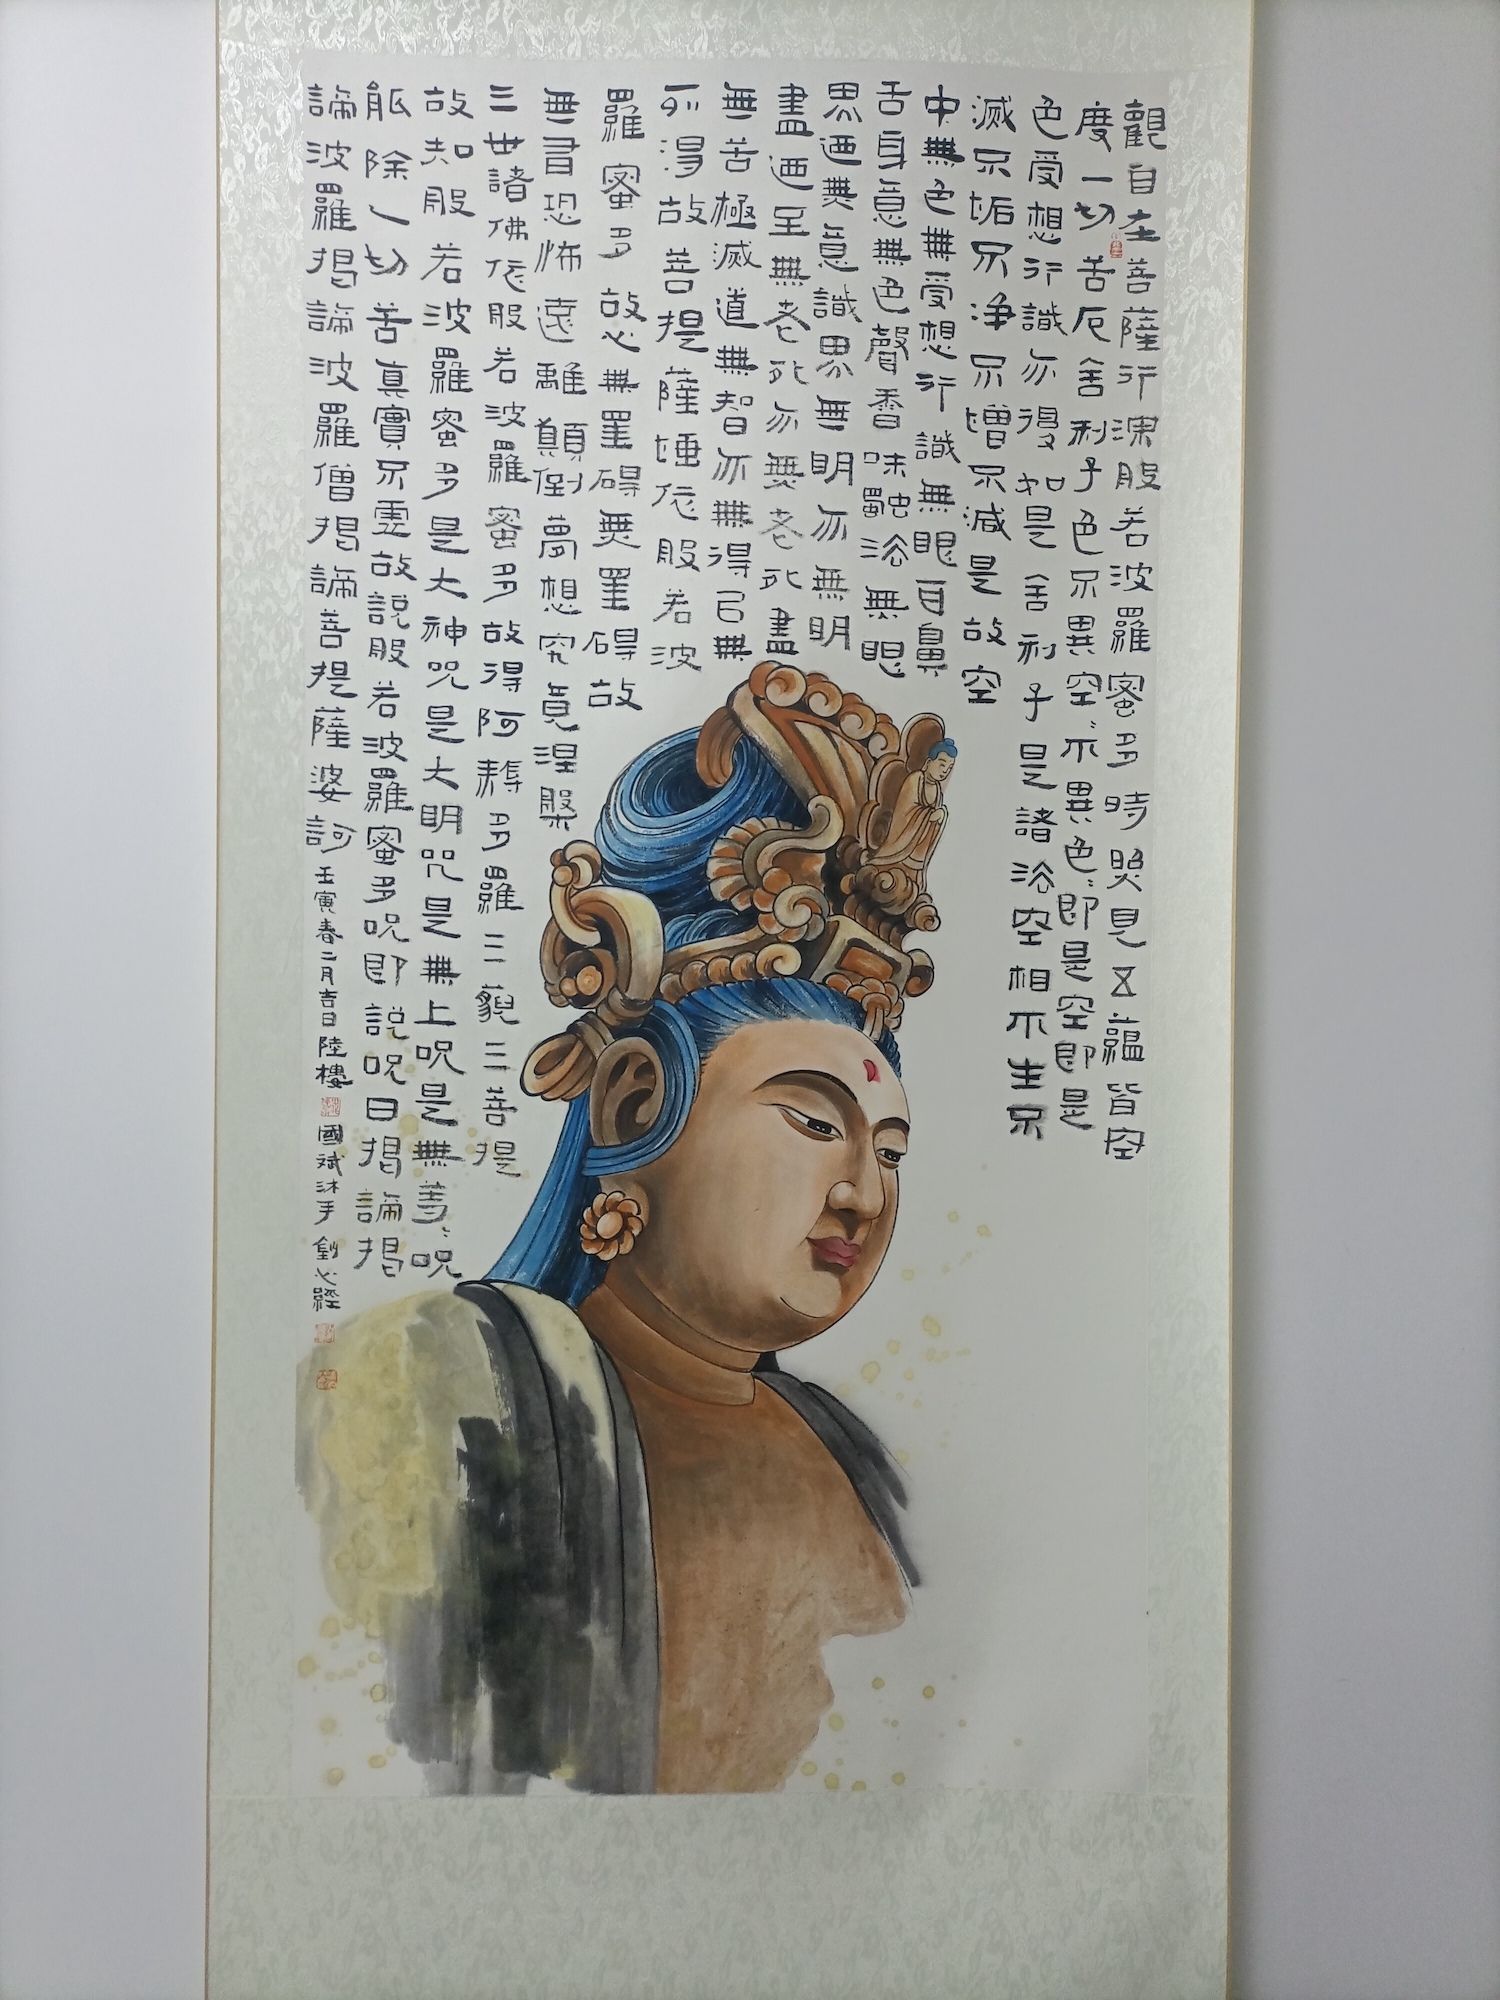 觀自在菩薩行深般若波羅蜜多時照見五蘊皆空
度一切苦厄舍利子色不異空〻不異色〻即是空〻即是
色受想行識亦復如是舍利子是諸法空相不生不
滅不垢不淨不增不減是故空
中無色無受想行識無眼耳鼻
舌身意無色聲香味觸法無眼
界迺無意識界無無明亦無無明
盡迺至無老死亦無老死盡
無苦極滅道無智亦無得以無
所得故菩提薩埵依般若波
羅蜜多故心無罣礙無罣礙故
無有恐怖遠離顛倒夢想究竟涅槃
三世諸佛依般若波羅蜜多故得阿耨多羅三藐三菩提
故知般若波羅蜜多是大神呪是大明呪是無上呪是無等〻呪
能除一切苦真實不虛故說般若波羅蜜多呪即說呪曰揭諦揭
諦波羅揭諦波羅僧揭諦菩提薩婆訶
壬寅春二月吉日陸樓
國斌沐手 心經